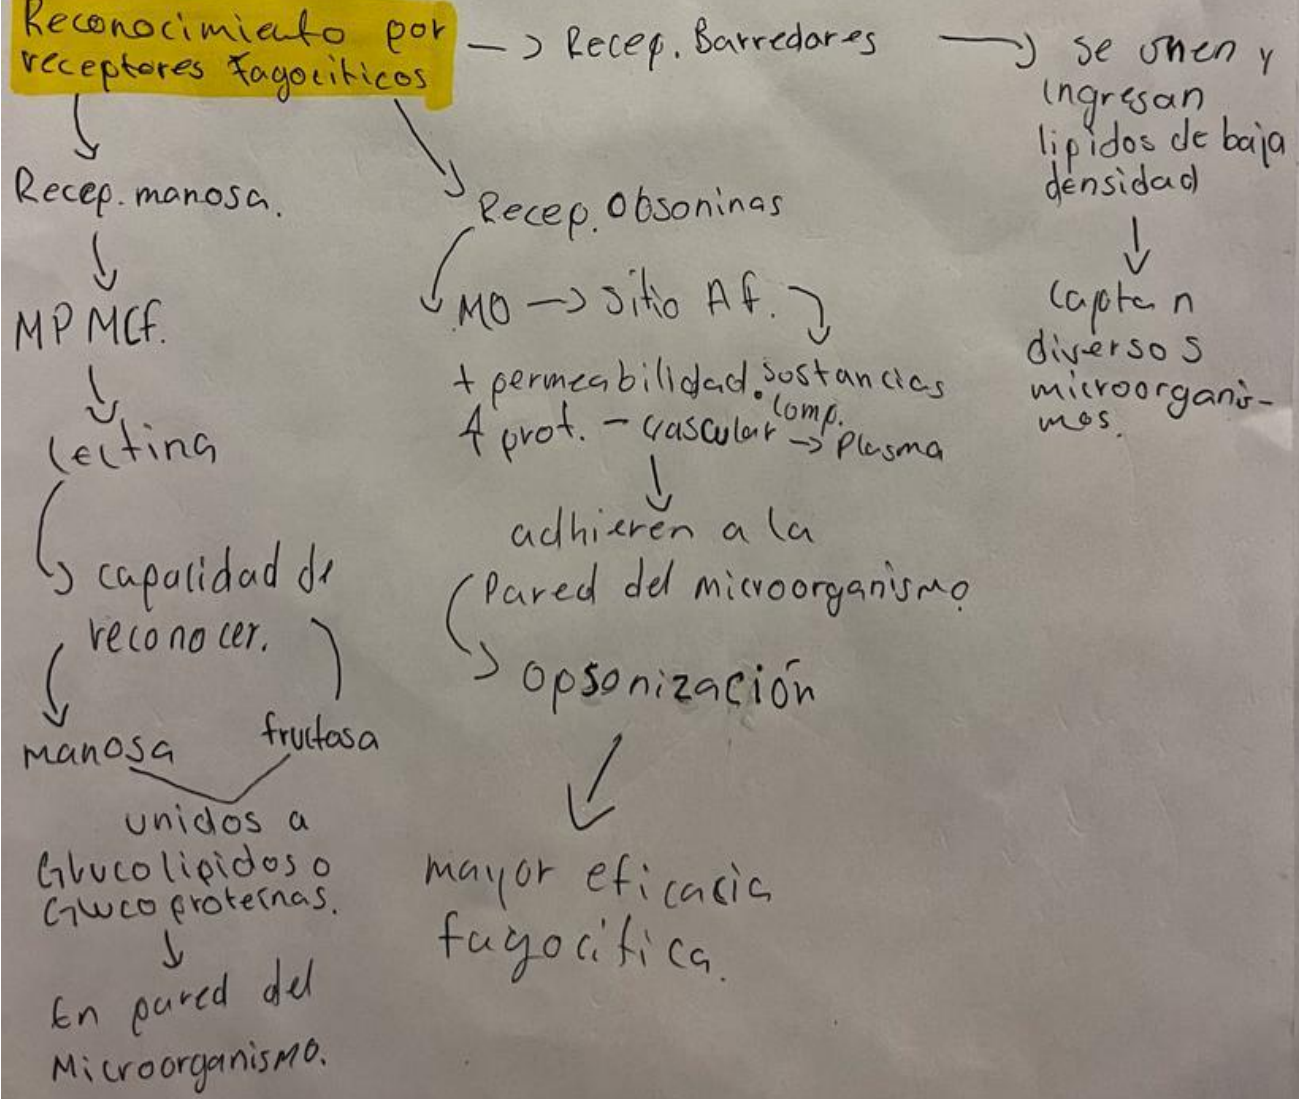 Reconocimiento por
receptores Fagocíticos
-> Recep. Barredores
-> se unen y
ingresan
lipidos de baja
densidad
captan
diversos
microorganis-
mos.
Recep. manosa.
MP MCf.
lectina
capacidad de
reconocer.
manosa
fructosa
unidos a
Glucolipidos o
Glucoproteínas.
En pared del
Microorganismo.
Recep. Obsoninas
MO -> sitio Af.
+ permeabilidad. sustancias
prot. - vascular comp. -> Plasma
adhieren a la
Pared del microorganismo
opsonización
mayor eficacia
fagocítica.